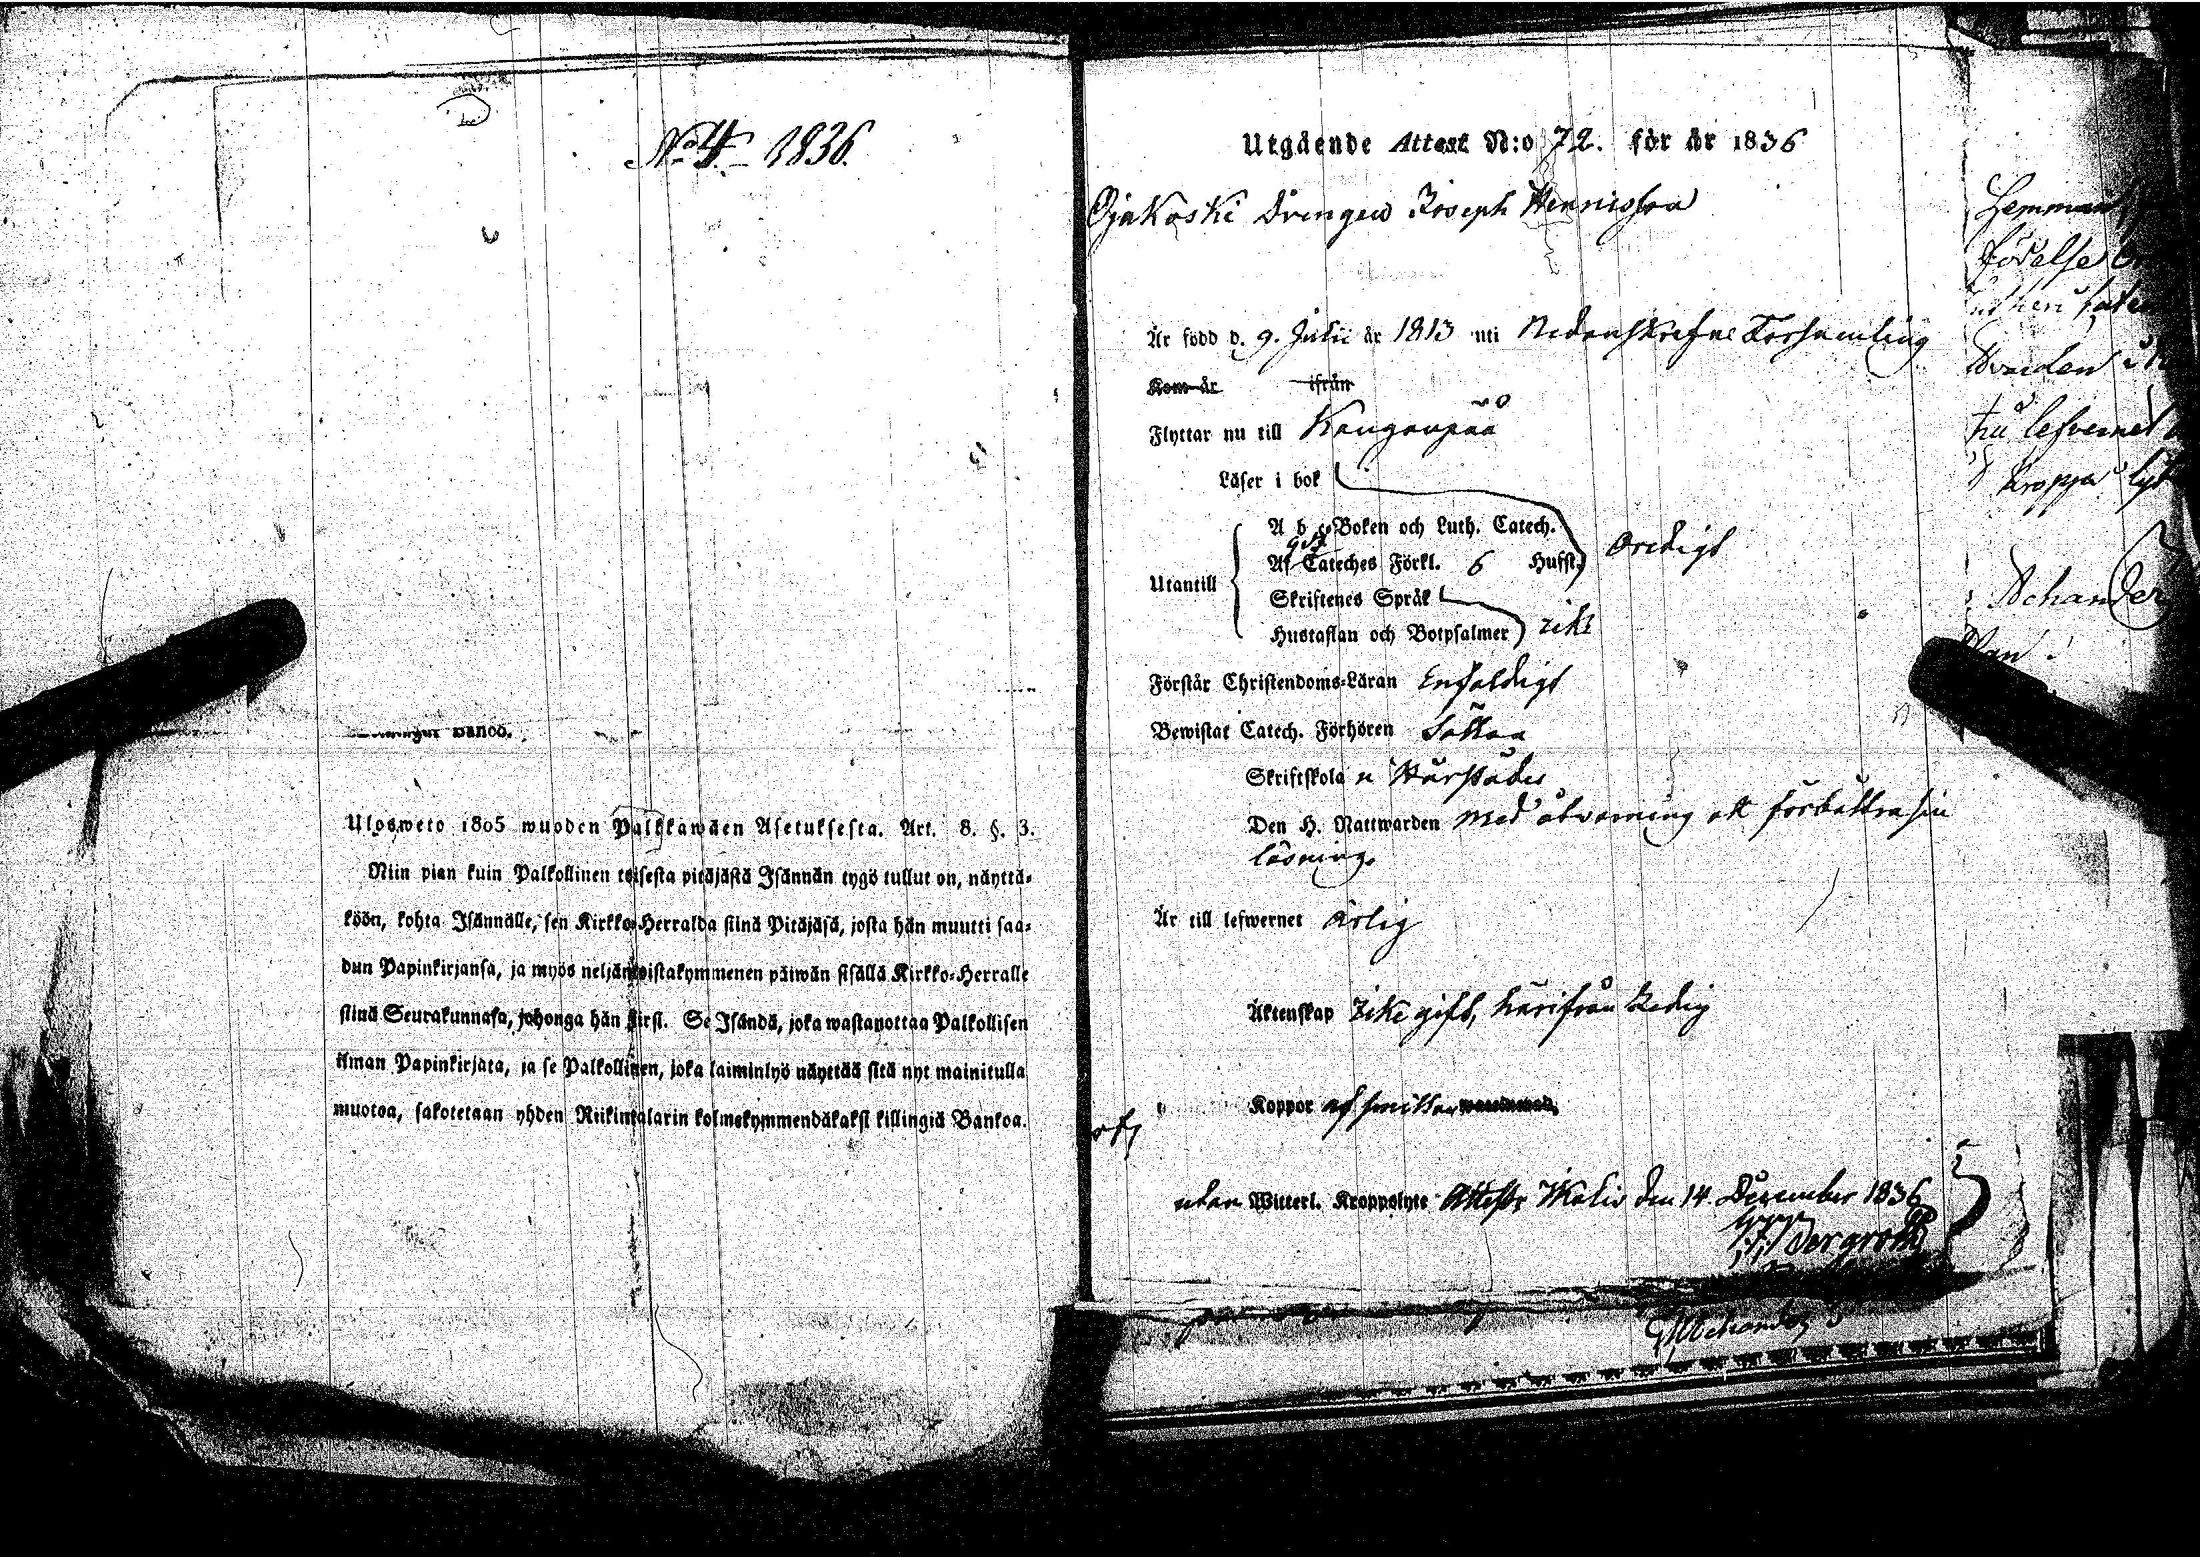 No 4 1836.
Ulosweto 1805 wuoden Palkkawäen Asetuksesta. Art. 8. §. 3.
Niin pian kuin Palkollinen toisesta pitäjästä Isännän tygö tullut on, näyttä-
köön, kohta Isännälle, sen Kirkko-Herralda siinä Pitäjäsä, josta hän muutti saa-
dun Papinkirjansa, ja myös neljäntoistakymmenen päiwän sisällä Kirkko-Herralle
siinä Seurakunnasa, johonga hän siirst. Se Isändä, joka wastanottaa Palkollisen
ilman Papinkirjata, ja se Palkollinen, joka laiminlyö näyttää sitä nyt mainitulla
muotoa, sakotetaan yhden Riikintalarin kolmekymmendäkaksi killingiä Bankoa.
Utgående Attest N:o 72. för år 1836
Ojakoski Drengen Joseph Henricsson
Är född d. 9. Julii år 1813 uti Nedanskrefne Församling
Kom år ifrån
Flyttar nu till Kanganpää
Läser i bok
A b c Boken och Luth. Catech.
Af Cateches Förkl. 6 Hufst. oredigt
Utantill
Skriftenes Språk
Hustaflan och Botpsalmer icke
Förstår Christendoms-Läran Enfaldigt
Bewistat Catech. Förhören Sällan
Skriftskola
Den H. Nattwarden med åtvarning att förbättra sin
läsning.
Är till lefwernet ärlig
Äktenskap Icke gift, härifrån Ledig
Koppor af
utan Witterl. Kroppslyte Attest. Ikalis den 14. December 1836
Lemman
födelse
Nchander